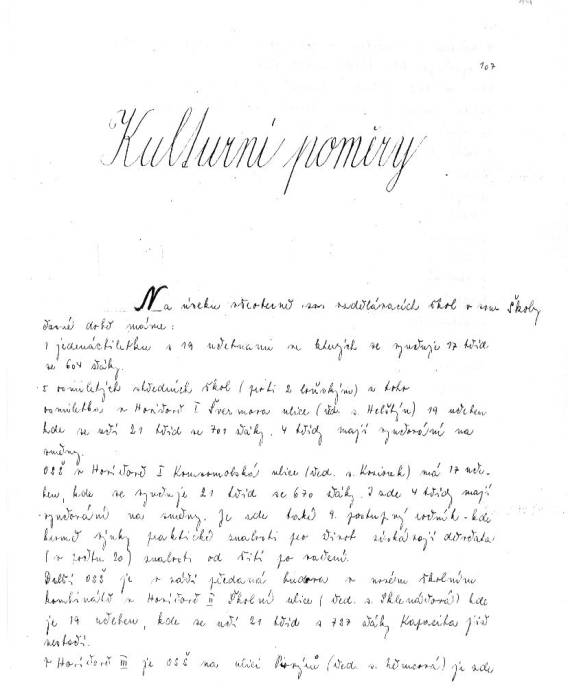 107
Kulturní poměry
Na úseku všeobecně vzdělávacích škol v Školy
době máme:
1 jedenáctiletku s 19 učebnami ve kterých se vyučuje 17 tříd
se 604 žáky.
5 osmiletých středních škol (proti 2 loňským) a to
osmiletka v Havířově I Švermova ulice (řed. s. ) 19 učeben
kde se učí 21 tříd se 701 žáky. 4 třídy mají vyučování na
směny.
OSŠ v Havířově I Komsomolská ulice (řed. s. ) má 17 uče-
ben, kde se vyučuje 21 tříd se 670 žáky. I zde 4 třídy mají
vyučování na směny. Je zde také 9. postupný ročník - kde
kromě výuky praktické znalosti pro život získávají děvčata
(v počtu 20) znalosti od šití po vaření.
Další OSŠ je v září předaná budova v novém školním
kombinátě v Havířově II Školní ulice (řed. s. Sklenářová) kde
je 19 učeben, kde se učí 21 tříd s 727 žáky Kapacita již
nestačí.
V Havířově III je OSŠ na ulici (řed. s. Němcová) je zde